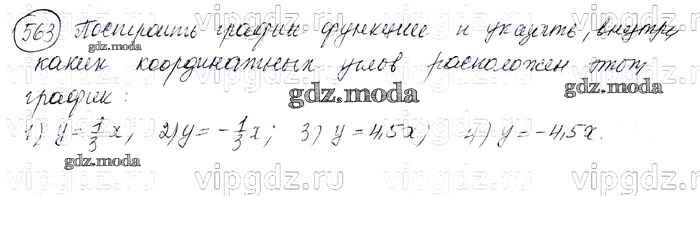 563 Построить график функции и указать, внутри
gdz.moda
каких координатных углов расположен этот
gdz.moda
gdz.moda
график:
1) y = 1/3 x; 2) y = -1/3 x; 3) y = 4,5x; 4) y = -4,5x.
vipgdz.ru vipgdz.ru vipgdz.ru vipgdz.ru